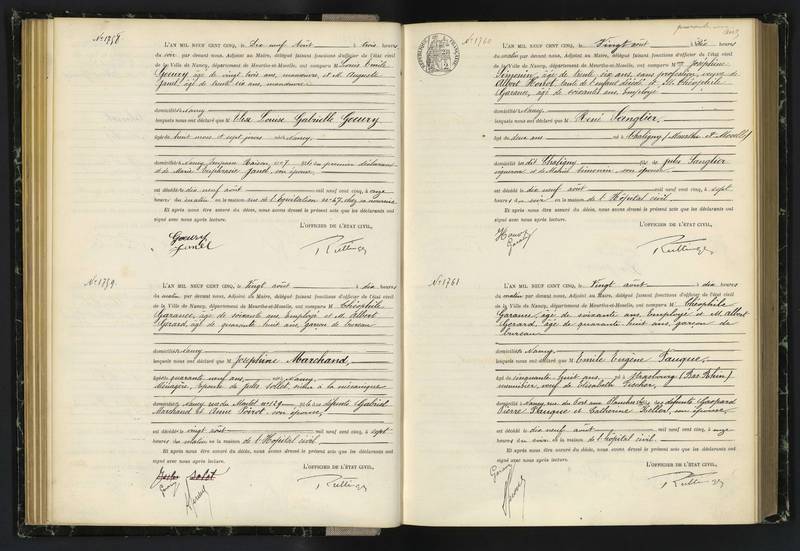 No 1758
L'AN MIL NEUF CENT CINQ, le Dix neuf Août à trois heures
du soir par devant nous, Adjoint au Maire, délégué faisant fonctions d'officier de l'état civil
de la Ville de Nancy, département de Meurthe-et-Moselle, ont comparu M Louis Emile
Goeury, âgé de vingt trois ans, manœuvre, et M. Auguste
Janel, âgé de trente six ans, manœuvre
domiciliés à Nancy
lesquels nous ont déclaré que M Louise Gabrielle Goeury
âgée de huit mois et sept jours née à Nancy
domiciliée à Nancy, Maison No 7 fille du premier déclarant
et de Marie Euphrasie Janel, son épouse,
est décédée le dix neuf août mil neuf cent cinq, à onze
heures du matin en la maison rue de l'Equitation No 47, chez sa nourrice
Et après nous être assuré du décès, nous avons dressé le présent acte que les déclarants ont
signé avec nous après lecture.
L'OFFICIER DE L'ÉTAT CIVIL,
Goeury
Janel
No 1759
L'AN MIL NEUF CENT CINQ, le Vingt août à dix heures
du matin par devant nous, Adjoint au Maire, délégué faisant fonctions d'officier de l'état civil
de la Ville de Nancy, département de Meurthe-et-Moselle, ont comparu M Théophile
Garance, âgé de soixante ans, Employé et M. Albert
Gérard, âgé de quarante huit ans, garçon de bureau
domiciliés à Nancy
lesquels nous ont déclaré que M Joséphine Marchand,
âgée de quarante neuf ans, née à Nancy
Ménagère, épouse de Jules Sollet, ouvrier à la mécanique
domiciliée à Nancy rue du Montet No 129 fille des défunts Gabriel
Marchand et Anne Poirot, son épouse,
est décédée le vingt août mil neuf cent cinq, à sept
heures du matin en la maison de l'Hôpital civil
Et après nous être assuré du décès, nous avons dressé le présent acte que les déclarants ont
signé avec nous après lecture.
L'OFFICIER DE L'ÉTAT CIVIL,
No 1760
L'AN MIL NEUF CENT CINQ, le Vingt août à Dix heures
du matin par devant nous, Adjoint au Maire, délégué faisant fonctions d'officier de l'état civil
de la Ville de Nancy, département de Meurthe-et-Moselle, ont comparu Mme Joséphine
Simonin, âgée de trente six ans, sans profession, veuve de
Albert Honot, tante de l'enfant décédé et M. Théophile
Garance, âgé de soixante ans, Employé
domiciliés à Nancy
lesquels nous ont déclaré que M René Sanglier,
âgé de deux ans né à Chaligny (Meurthe et Moselle)
domicilié au dit Chaligny fils de Jules Sanglier
vigneron et de Simonin son épouse
est décédé le dix neuf août mil neuf cent cinq, à sept
heures du soir en la maison de l'Hôpital civil
Et après nous être assuré du décès, nous avons dressé le présent acte que les déclarants ont
signé avec nous après lecture.
L'OFFICIER DE L'ÉTAT CIVIL,
No 1761
L'AN MIL NEUF CENT CINQ, le Vingt août à dix heures
du matin par devant nous, Adjoint au Maire, délégué faisant fonctions d'officier de l'état civil
de la Ville de Nancy, département de Meurthe-et-Moselle, ont comparu M Théophile
Garance, âgé de soixante ans, Employé et M. Albert
Gérard, âgé de quarante huit ans, garçon de
bureau
domiciliés à Nancy
lesquels nous ont déclaré que M Emile Eugène Pauque,
âgé de cinquante huit ans, né à Strasbourg (Bas Rhin)
veuf de Elisabeth Fischer,
domicilié à Nancy, rue du fils des défunts Gaspard
Pierre Pauque et Catherine Keller, son épouse,
est décédé le dix neuf août mil neuf cent cinq, à onze
heures du soir en la maison de l'hôpital civil.
Et après nous être assuré du décès, nous avons dressé le présent acte que les déclarants ont
signé avec nous après lecture.
L'OFFICIER DE L'ÉTAT CIVIL,